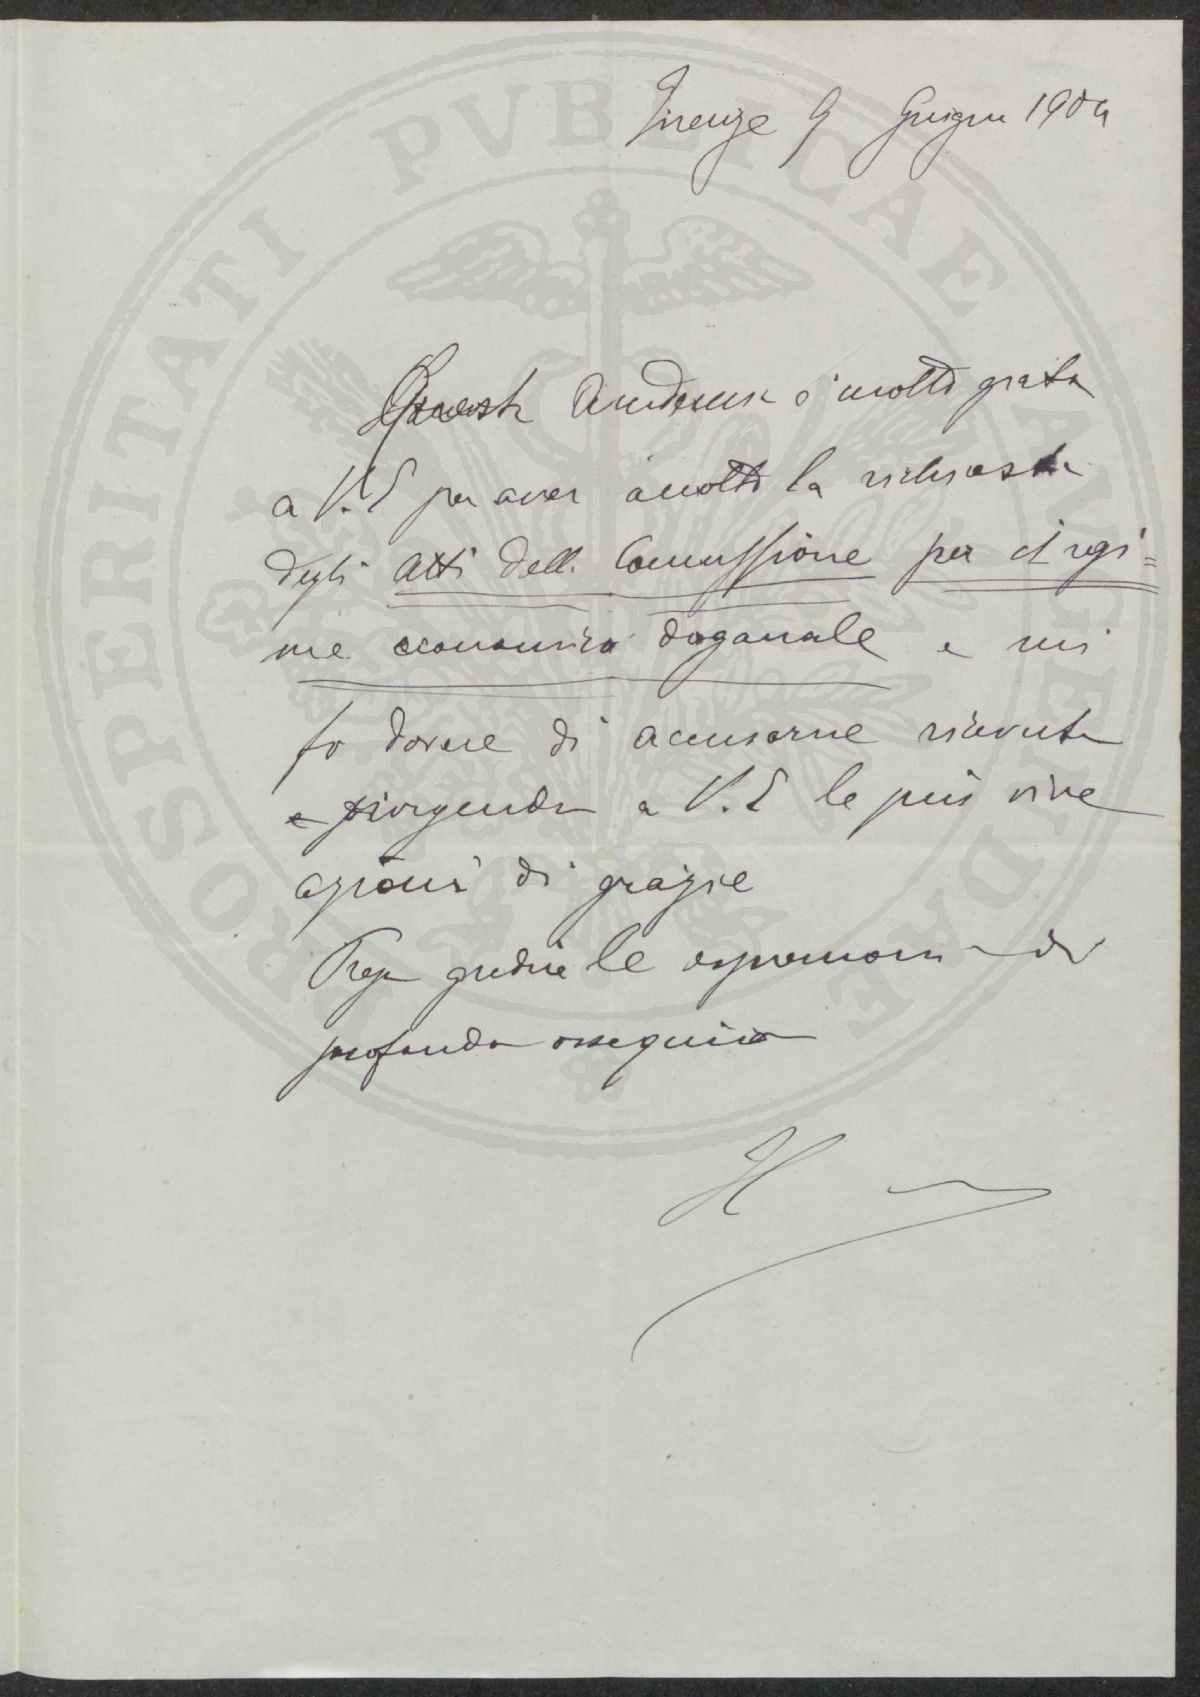 PROSPERITATI PVBLICAE AVGENDAE
Firenze 9 Giugno 1904
Questa Accademia è molto grata
a V. E per aver accolto la richiesta
degli Atti della Commissione per il regi=
me economico doganale e mi
fo dovere di accusarne ricevuta
porgendo a V. E le più vive
azioni di grazie
Prego gradire le espressioni di
profondo ossequio